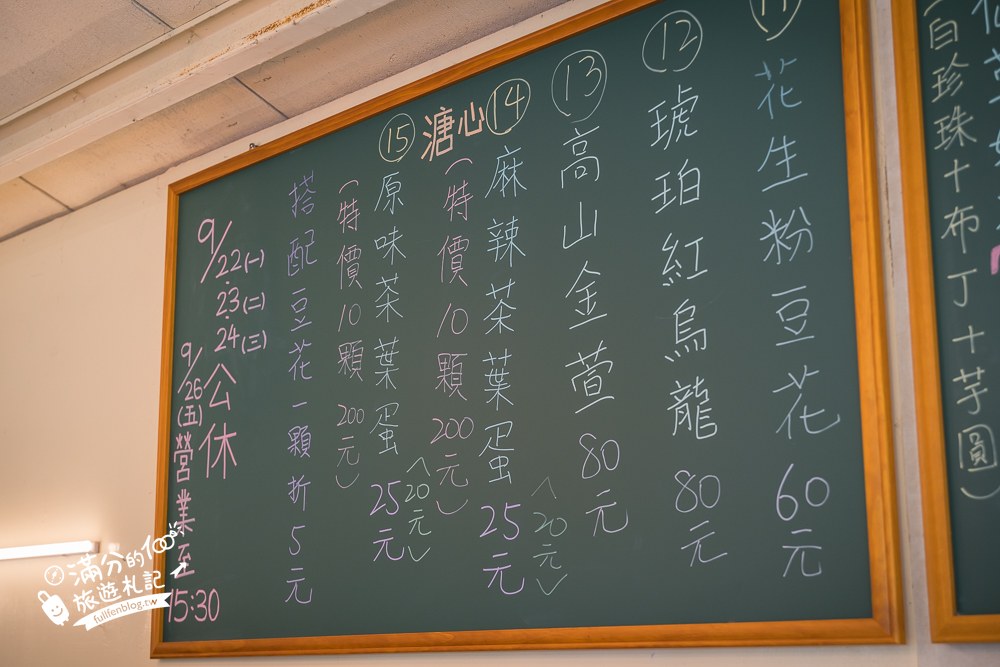 (白珍珠+布丁+芋圓)
⑪
花生粉豆花 60元
⑫
琥珀紅烏龍 80元
⑬
高山金萱 80元
溏心⑭
麻辣茶葉蛋 25元
<20元>
(特價10顆200元)
⑮
原味茶葉蛋 25元
<20元>
(特價10顆200元)
搭配豆花一顆折5元
9/22(一)
23(二)
24(三)
公休
9/26(五)營業至15:30
滿分的100
旅遊札記
fullfenblog.tw